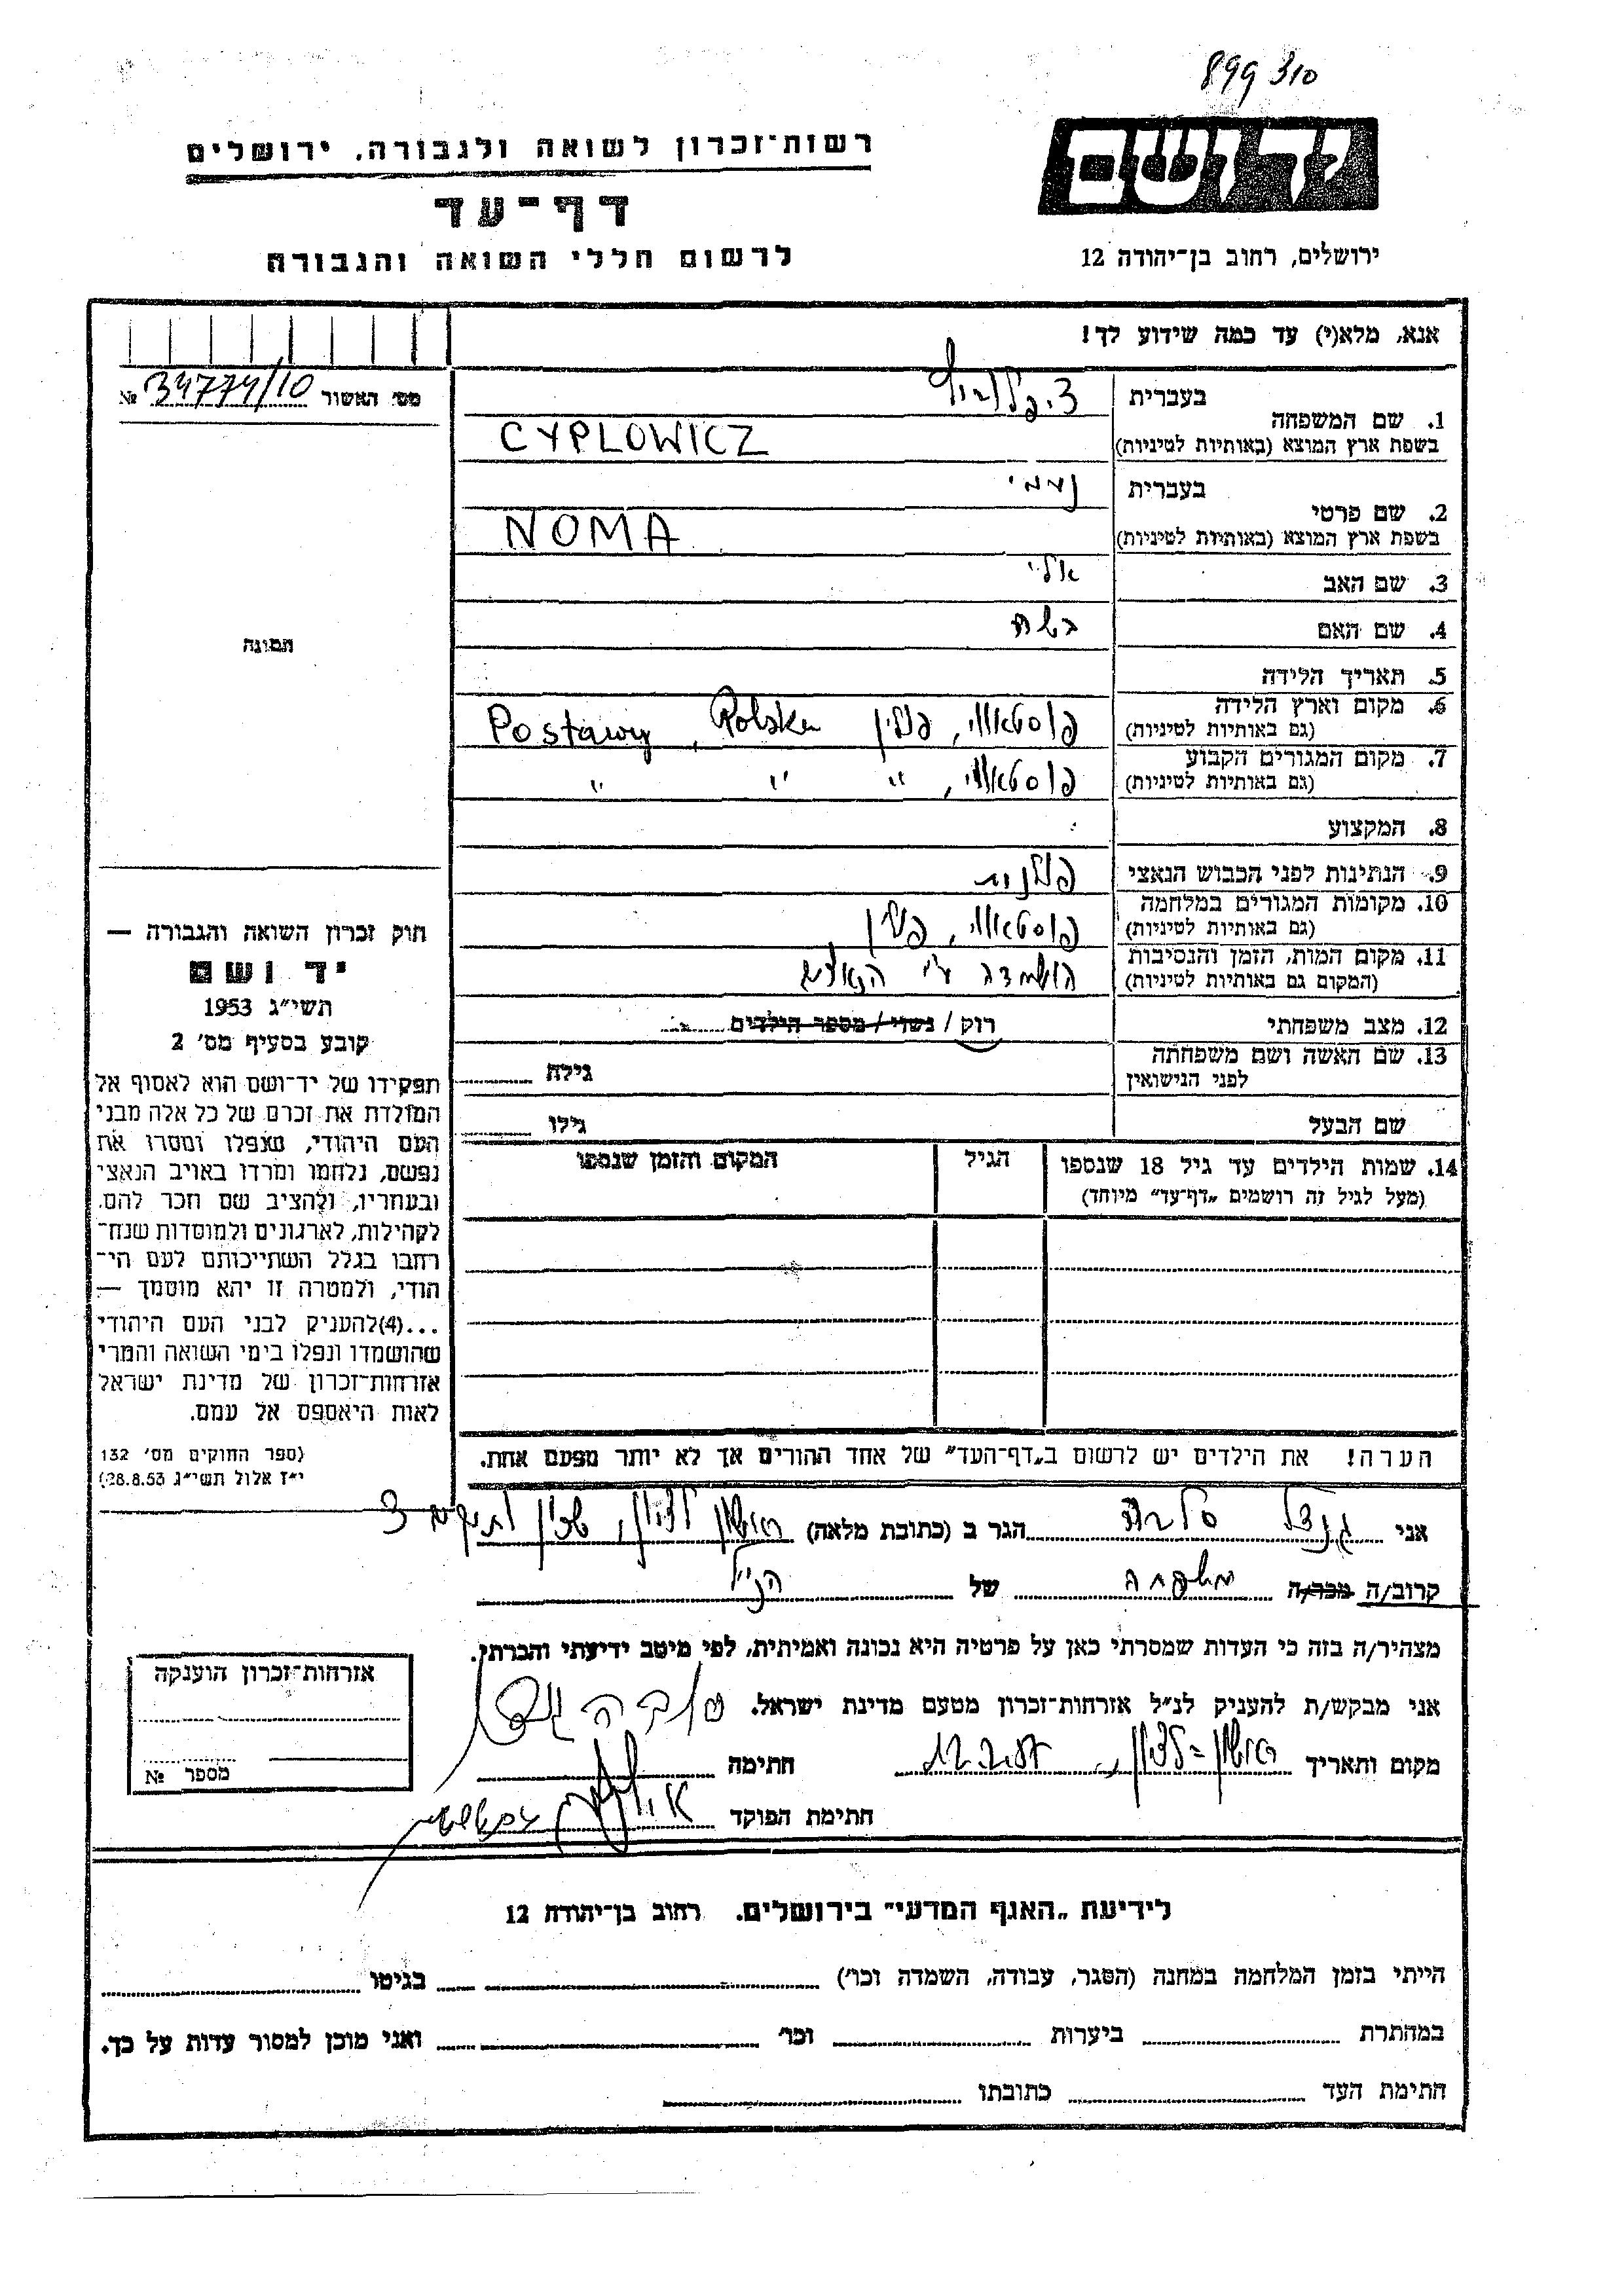 899 310
רשות־זכרון לשואה ולגבורה, ירושלים
יד ושם
דף־עד
לרשום חללי השואה והגבורה
ירושלים, רחוב בן־יהודה 12
אנא, מלא(י) עד כמה שידוע לך!
מס׳ האשור 34774/10 №
1. שם המשפחה
בעברית ציפלוביץ
בשפת ארץ המוצא (באותיות לטיניות) CYPLOWICZ
2. שם פרטי
בעברית נעמי
בשפת ארץ המוצא (באותיות לטיניות) NOMA
3. שם האב אלי
4. שם האם בשה
תמונה
5. תאריך הלידה
6. מקום וארץ הלידה
(גם באותיות לטיניות) פוסטאווי, פולין Postawy, Polska
7. מקום המגורים הקבוע
(גם באותיות לטיניות) פוסטאווי, " " "
8. המקצוע
9. הנתינות לפני הכבוש הנאצי פולנית
10. מקומות המגורים במלחמה
(גם באותיות לטיניות) פוסטאווי, פולין
11. מקום המות, הזמן והנסיבות
(המקום גם באותיות לטיניות) הושמדה ע״י הנאצים
12. מצב משפחתי רוק / נשוי / מספר הילדים
13. שם האשה ושם משפחתה
לפני הנישואין גילה
שם הבעל גילו
14. שמות הילדים עד גיל 18 שנספו הגיל המקום והזמן שנספו
(מעל לגיל זה רושמים „דף־עד״ מיוחד)
חוק זכרון השואה והגבורה —
יד ושם
תשי״ג 1953
קובע בסעיף מס׳ 2
תפקידו של יד־ושם הוא לאסוף אל
המולדת את זכרם של כל אלה מבני
העם היהודי, שנפלו ומסרו את
נפשם, נלחמו ומרדו באויב הנאצי
ובעוזריו, ולהציב שם וזכר להם,
לקהילות, לארגונים ולמוסדות שנח־
רחבו בגלל השתייכותם לעם הי־
הודי, ולמטרה זו יהא מוסמך —
...(4)להעניק לבני העם היהודי
שהושמדו ונפלו בימי השואה והמרי
אזרחות־זכרון של מדינת ישראל
לאות היאספם אל עמם.
(ספר החוקים מס׳ 132
י״ז אלול תשי״ג 28.8.53)
הערה! את הילדים יש לרשום ב„דף־העד״ של אחד ההורים אך לא יותר מפעם אחת.
אני גנדל הגר ב (כתובת מלאה) ראשון לציון, שכון ותיקים 3
קרוב/ה מכר/ה משפחה של הנ״ל
מצהיר/ה בזה כי העדות שמסרתי כאן על פרטיה היא נכונה ואמיתית, לפי מיטב ידיעתי והכרתי.
אני מבקש/ת להעניק לנ״ל אזרחות־זכרון מטעם מדינת ישראל.
מקום ותאריך ראשון-לציון, חתימה
חתימת הפוקד
אזרחות־זכרון הוענקה
מספר №
לידיעת „האגף המדעי״ בירושלים. רחוב בן־יהודה 12
הייתי בזמן המלחמה במחנה (הסגר, עבודה, השמדה וכו׳) בגיטו
במחתרת ביערות וכו׳ ואני מוכן למסור עדות על כך.
חתימת העד כתובתו